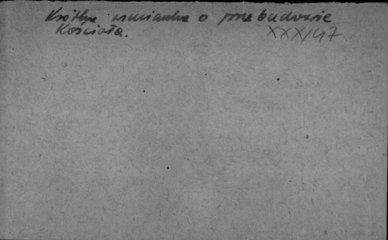 Krótka wzmianka o przebudowie
Kościoła. XXX/47